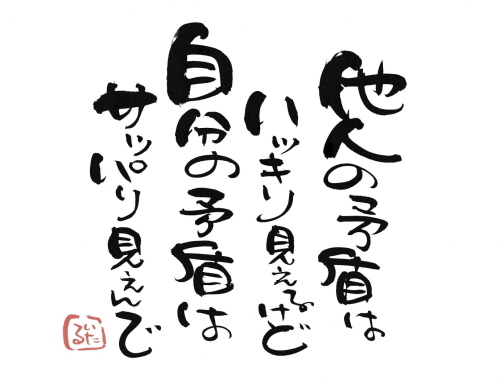 他人の矛盾は
ハッキリ見えるけど
自分の矛盾は
サッパリ見えんで